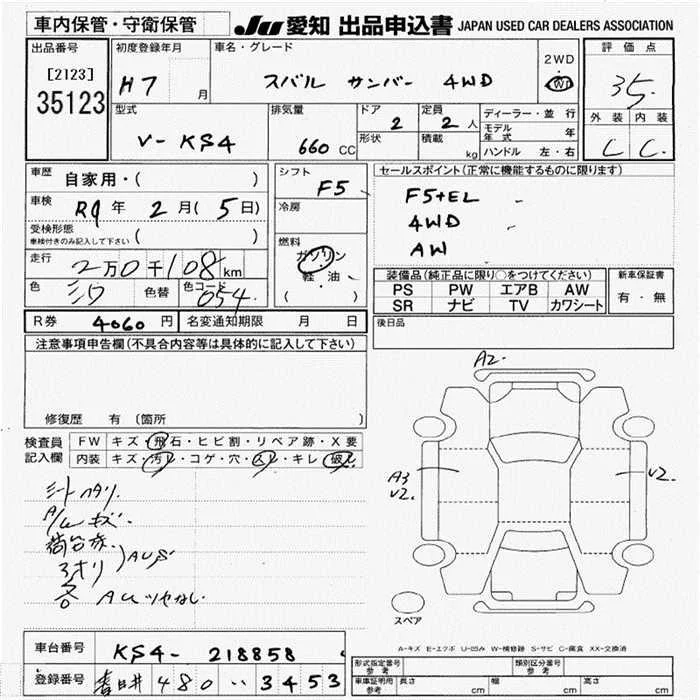 車内保管・守衛保管 JU 愛知 出品申込書 JAPAN USED CAR DEALERS ASSOCIATION
出品番号 初度登録年月 車名・グレード 評価点
[2123] 2WD
35123 H7 月 スバル サンバー 4WD 35.
型式 排気量 ドア 定員 ディーラー・並行 外装 内装
V-KS4 660 CC 2 2人 モデル年式 年
形状 積載 kg ハンドル 左・右 C C.
車歴 自家用・( ) シフト F5 セールスポイント(正常に機能するものに限ります)
車検 R9年 2月(5日) 冷房 F5+EL
受検形態 4WD
車検付きのみ記入して下さい ( ) 燃料 AW
走行 2万0千108km ガソリン 装備品(純正品に限り○をつけてください) 新車保証書
軽・油 PS PW エアB AW 有・無
色 シロ 色替 色コード 054 ( ) SR ナビ TV カワシート
R券 4060円 名変通知期限 月 日 後日品
注意事項申告欄(不具合内容等は具体的に記入して下さい)
修復歴 有 〔箇所 〕
A2.
検査員 FW キズ・飛石・ヒビ割・リペア跡・X要
記入欄 内装 キズ・汚レ・コゲ・穴・スレ・キレ・破レ
A3 V2. V2.
A/W キズ.
スペア
A-キズ E-エクボ U-凹み W-補修跡 S-サビ C-腐食 XX-交換済
車台番号 KS4-218858
登録番号 春日井 480 ・・3453
形式指定番号 参考 類別区分番号 参考
車庫証明用 参考 長さ cm 幅 cm 高さ cm